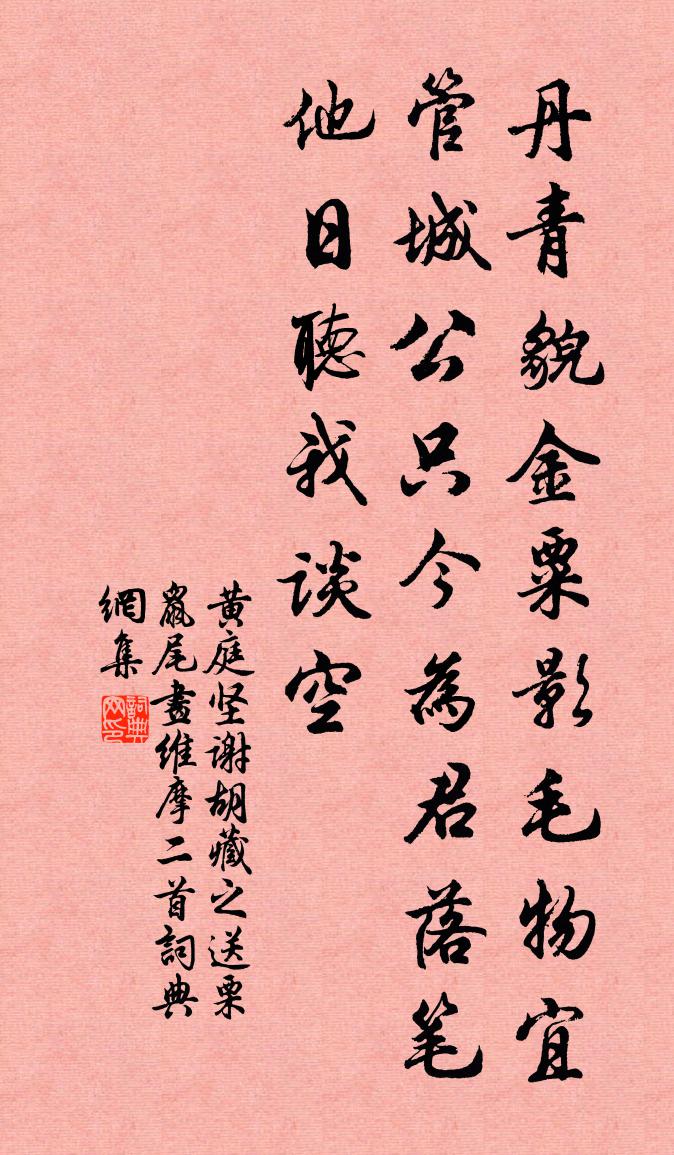 丹青貌金粟影毛物宜
管城公只今為君落笔
他日聽我谈空
黄庭坚谢胡藏之送栗
鼠尾畫維摩二首詞典
網集
詞典
网印